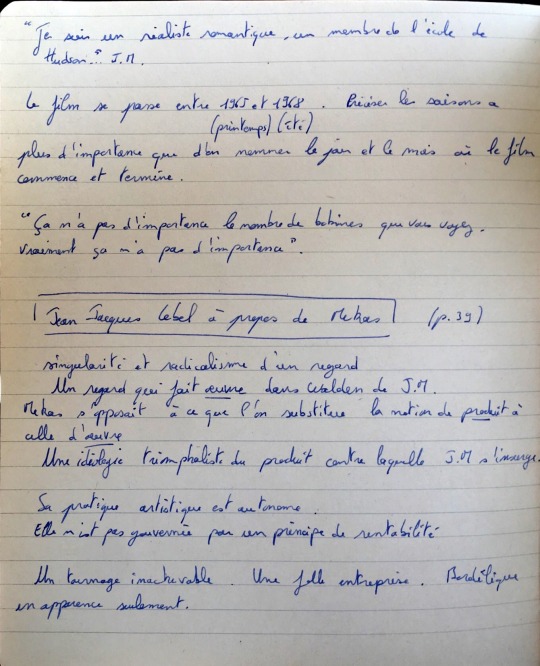 "Je suis un réaliste romantique, un membre de l'école de
Hudson." J.M.
Le film se passe entre 1965 et 1968. Préciser les saisons a
(printemps) (été)
plus d'importance que d'en nommer le jour et le mois où le film
commence et termine.
"Ça n'a pas d'importance le nombre de bobines que vous voyez.
Vraiment ça n'a pas d'importance".
Jean Jacques Lebel à propos de Mekas (p.39)
singularité et radicalisme d'un regard
Un regard qui fait œuvre dans Walden de J.M.
Mekas s'opposait à ce que l'on substitue la notion de produit à
celle d'œuvre
Une idéologie triomphaliste du produit contre laquelle J.M s'insurge.
Sa pratique artistique est autonome.
Elle n'est pas gouvernée par un principe de rentabilité
Un tournage inachevable. Une folle entreprise. Bordélique
en apparence seulement.